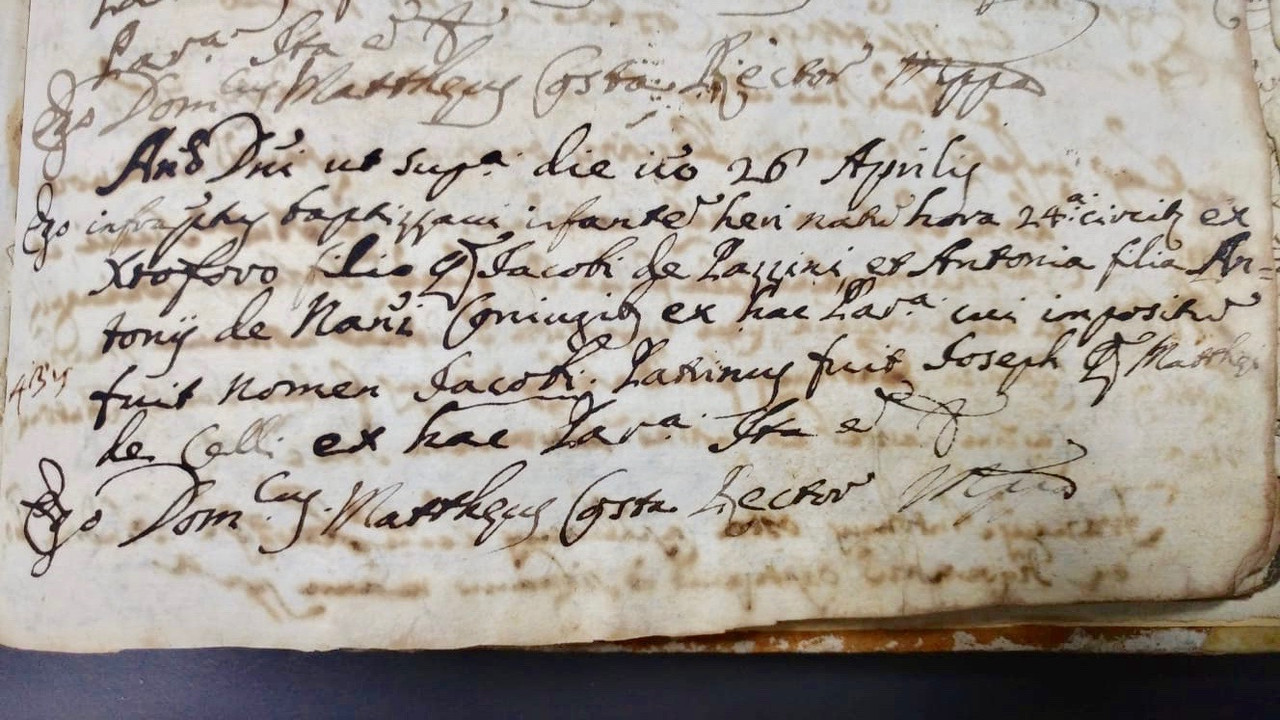 Par.a Ita e
Ego Dom.cus Mattheus Costa Rector
Ano Dni ut sup.a die vo 26 Aprilis
Ego infraptus baptizzavi infante heri natu hora 24.a circit ex
Xtoforo filio q Jacobi de Pazzini et Antonia filia An=
tonij de Nani Coniugib ex hac Par.a cui impositu
fuit nomen Jacobi. Patrinus fuit Joseph q Matthei
de Celli ex hac Par.a Ita e
Ego Dom.cus Mattheus Costa Rector